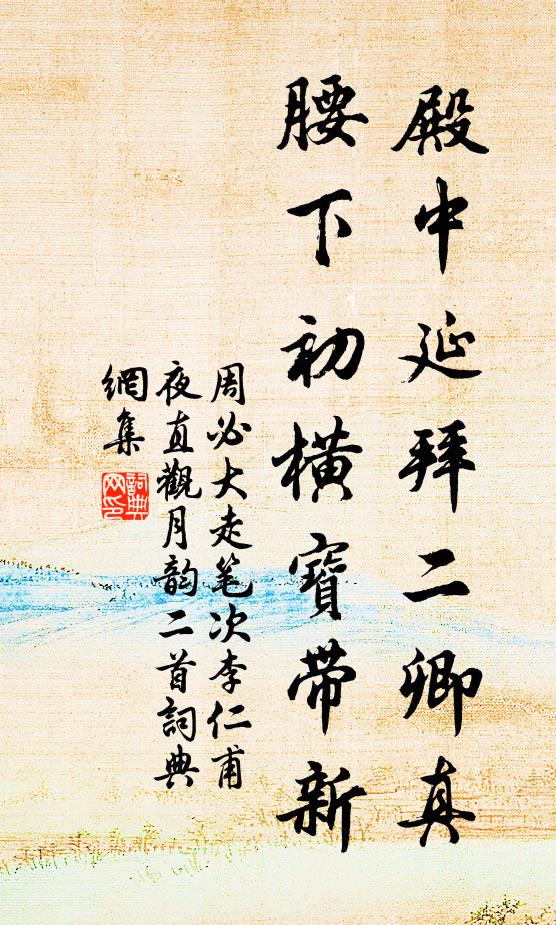 殿中延拜二卿真
腰下初橫寶帶新
周必大走笔次李仁甫
夜直觀月韵二首詞典
網集
詞典
网印